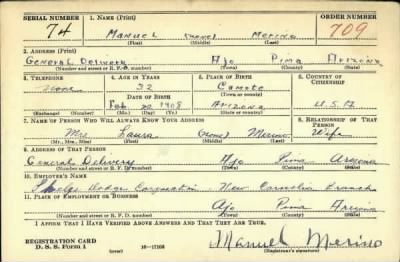 SERIAL NUMBER 1. NAME (Print) ORDER NUMBER
74 Manuel (none) Merino 709
(First) (Middle) (Last)
2. ADDRESS (Print)
General Delivery Ajo Pima Arizona
(Number and street or R. F. D. number) (Town) (County) (State)
3. TELEPHONE 4. AGE IN YEARS 5. PLACE OF BIRTH 6. COUNTRY OF CITIZENSHIP
None 32
DATE OF BIRTH
Feb. 1908 Arizona U.S.A.
(Mo.) (Day) (Yr.) (State or country)
7. NAME OF PERSON WHO WILL ALWAYS KNOW YOUR ADDRESS 8. RELATIONSHIP OF THAT PERSON
Mrs Laura (none) Merino Wife
(Mr., Mrs., Miss) (First) (Middle) (Last)
9. ADDRESS OF THAT PERSON
General Delivery Ajo Pima Arizona
(Number and street or R. F. D. number) (Town) (County) (State)
10. EMPLOYER'S NAME
Phelps Dodge Corporation - New Cornelia Branch
11. PLACE OF EMPLOYMENT OR BUSINESS
Ajo Pima Arizona
(Number and street or R. F. D. number) (Town) (County) (State)
I AFFIRM THAT I HAVE VERIFIED ABOVE ANSWERS AND THAT THEY ARE TRUE.
REGISTRATION CARD
D. S. S. Form 1 (over) 16—17105 Manuel Merino
(Registrant's signature)